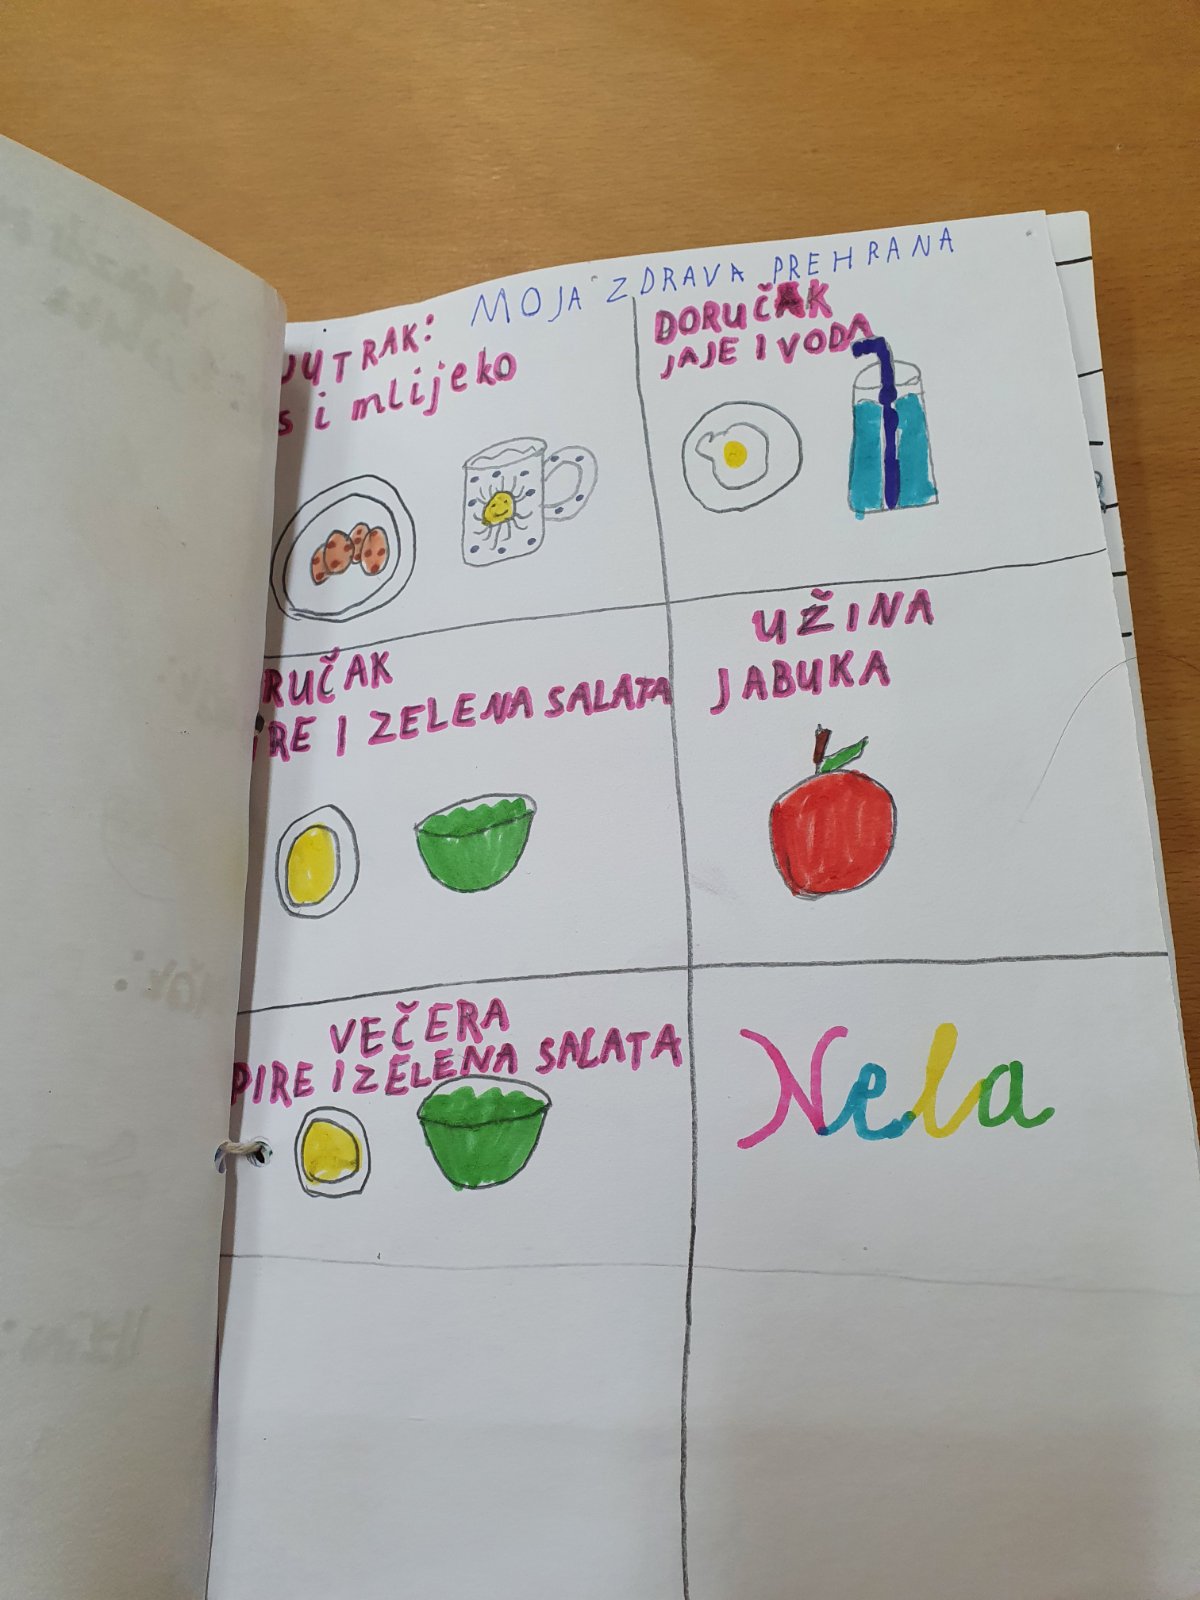 MOJA ZDRAVA PREHRANA
JUTRAK:
s i mlijeko
DORUČAK
JAJE I VODA
RUČAK
IRE I ZELENA SALATA
UŽINA
JABUKA
VEČERA
PIRE I ZELENA SALATA
Nela